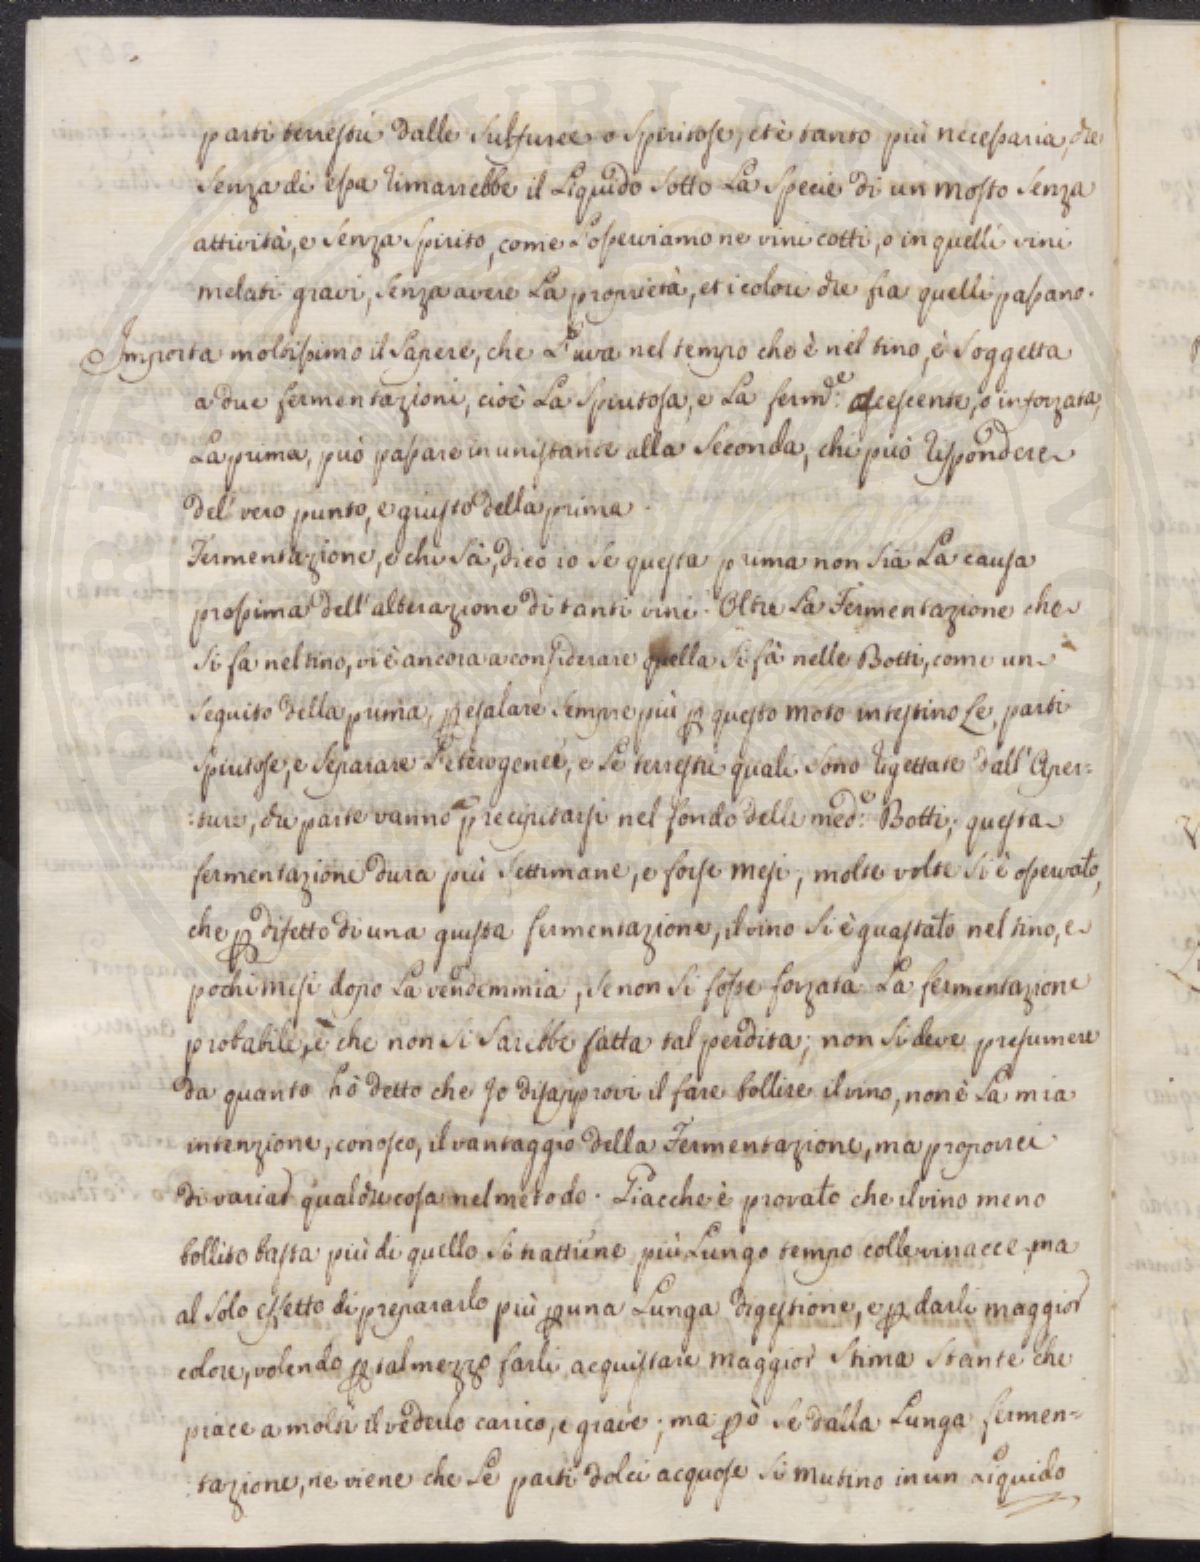 parti terrestri dalle sulfuree o spiritose, et è tanto più necessaria, che
senza di essa rimarrebbe il Liquido sotto La specie di un mosto senza
attività, e senza spirito, come l'osserviamo ne vini cotti, o in quelli vini
melati gravi, senza avere La proprietà, et i colori che fra quelli passano.
Importa moltissimo il sapere, che L'uva nel tempo che è nel tino, è soggetta
a due fermentazioni, cioè La spiritosa, e La ferm.e acescente, o inforzata,
La prima, può passare in un istante alla seconda, chi può rispondere
del vero punto, e giusto della prima.
Fermentazione, e chi sà, dico io se questa prima non sia La causa
prossima dell'alterazione di tanti vini. Oltre La Fermentazione che
si fa nel tino, vi è ancora a considerare quella si fà nelle Botti, come un
sequito della prima, p esalare sempre più p questo moto intestino Le parti
spiritose, e separare L'eterogenee, e Le terrestri quali sono rigettate dall'Aper=
:ture, che parte vanno à precipitarsi nel fondo delle med.e Botti; questa
fermentazione dura più settimane, e forse mesi, molte volte si è osservato,
che p difetto di una giusta fermentazione, il vino si è guastato nel tino, e
pochi mesi dopo La vendemmia, se non si fosse forzata La fermentazione
probabile, è che non si sarebbe fatta tal perdita; non si deve presumere
da quanto hò detto che Jo disapprovi il fare bollire il vino, non è La mia
intenzione, conosco, il vantaggio della Fermentazione, ma proporrei
di variar qualche cosa nel metodo. Giacche è provato che il vino meno
bollito basta più di quello si trattiene più Lungo tempo colle vinacce, ma
al solo effetto di prepararlo più p una Lunga digestione, e p darli maggior
colore, volendo p tal mezzo farli acquistare maggior stima stante che
piace a molti il vederlo carico, e grave; ma pò se dalla Lunga fermen=
:tazione, ne viene che Le parti dolci acquose si mutino in un Liquido